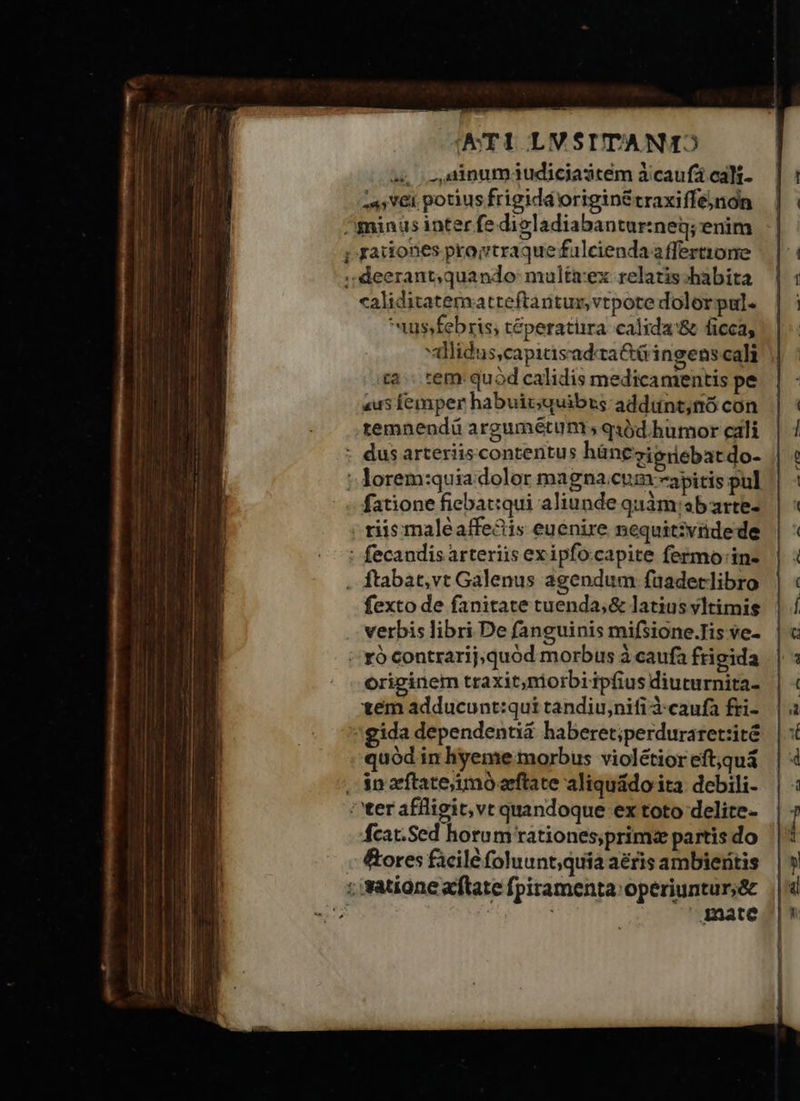 ATI LVSITANI
ainum iudicia: item à caufa cali-
vel potius frigida originẽ traxiffe, non
minus inter fe digladiabantur: neq; enim
rationes pro vtraque fulcienda affertione
deerant, quando multa ex relatis habita
caliditatem atteftantur, vtpote dolor pul-
febris, tẽperatura calida & ficca,
capitis ad tactũ ingens cali
quòd calidis medicamentis pe
femper habuit, quibus addunt, nõ con
temnendũ argumẽtum, quòd humor cali
dus arteriis contentus hunc gignebat do-
lorem: quia dolor magna cum capitis pul
fatione fiebat: qui aliunde quàm ab arte-
riis malè affectis euenire nequit: vnde de
fecandis arteriis ex ipfo capite fermo in-
ftabat, vt Galenus agendum fuadet libro
fexto de fanitate tuenda, & latius vltimis
verbis libri De fanguinis mifsione. Iis ve-
rò contrarij, quòd morbus à caufa frigida
originem traxit, morbi ipfius diuturnita-
tem adducunt: qui tandiu, nifi à caufa fri-
gida dependentiã haberet, perduraret: itẽ
quòd in hyeme morbus violẽtior eft, quá
in æftate, imò æftate aliquãdo ita debili-
ter affligit, vt quandoque ex toto delite-
fcat. Sed horum rationes, primæ partis do
ctores facilè foluunt, quia aëris ambientis
ratione æftate fpiramenta operiuntur, &
mate